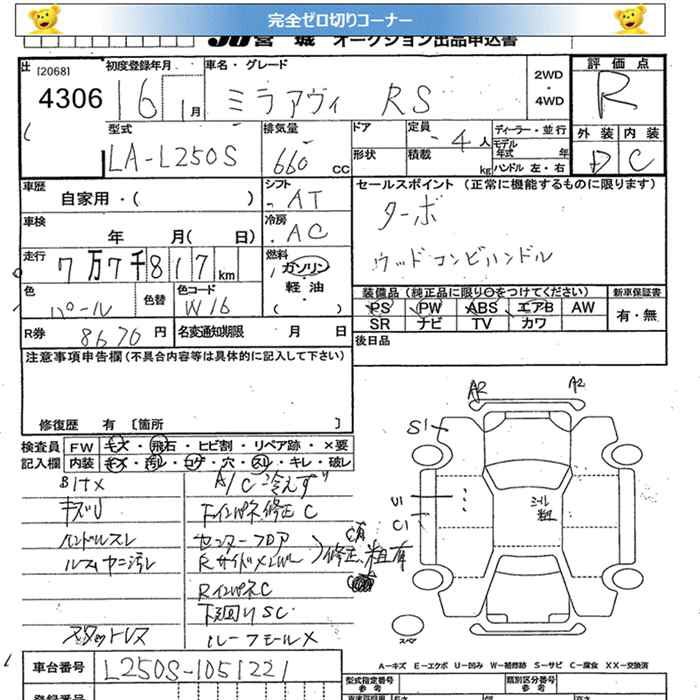 完全ゼロ切りコーナー
JU 宮 城 オークション出品申込書
出 [2068] 初度登録年月 車名・グレード 2WD・4WD 評価点
4306 16 1月 ミラアヴィ RS R
型式 排気量 ドア 定員 ディーラー・並行 外装 内装
LA-L250S 660 CC 形状 積載 - 4人 kg モデル年式 年 ハンドル 左・右 D C
車歴 シフト セールスポイント (正常に機能するものに限ります)
自家用・( ) - AT ターボ
車検 冷房
年 月( 日) ・AC ウッドコンビハンドル
走行 7万7千817km 燃料 ガソリン 軽油 ・( )
装備品(純正品に限り○をつけてください) 新車保証書
色 色替 色コード PS PW ABS エアB AW 有・無
パール W16 SR ナビ TV カワ
R券 8670円 名変通知期限 月 日 後日品
注意事項申告欄(不具合内容等は具体的に記入して下さい)
修復歴 有 [箇所 ]
検査員 FW キズ・飛石・ヒビ割・リペア跡・×要
記入欄 内装 キズ・汚レ・コゲ・穴・スレ・キレ・破レ
A2 A2
S1
U1
C1
シール粗
スペア
キズU
ハンドルスレ
ルームヤニ汚レ
スタットレス
A/C冷えず
下インパネ修正C
センターフロア
Rサイドメンバー
修正、粗有
RインパネC
下廻りSC
ルーフモールX
A-キズ E-エクボ U-凹み W-補修跡 S-サビ C-腐食 XX-交換済
車台番号 L250S-1051221
型式指定番号 参考 類別区分番号 参考
登録番号